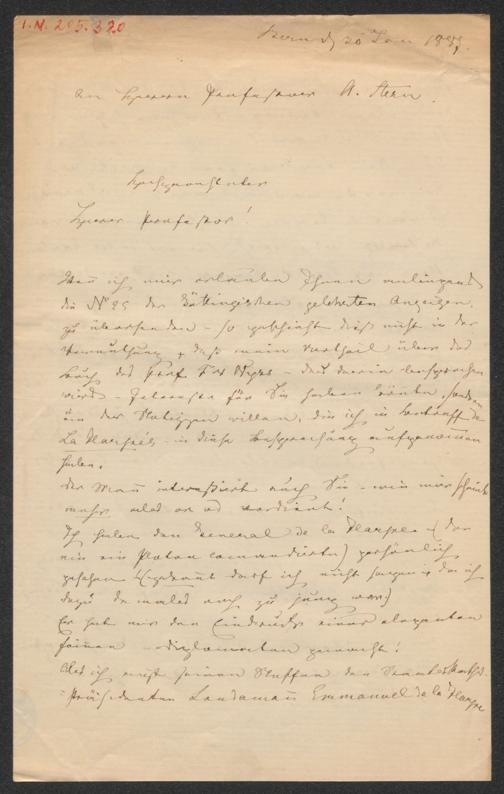 I.N. 205.320
Bern d. 20 Jan 1885.
An Herrn Professor A. Stern.
Hochgeachteter
Herr Professor!
Wenn ich mir erlaube Ihnen anliegend
die No 25 der Göttingischen gelehrten Anzeigen
zu übersenden – so geschieht dieß nicht in der
Vermuthung, daß mein Urtheil über das
Buch des Prof. – das darin besprochen
wird – Interesse für Sie haben könnte, sondern
um der Notizzen willen, die ich in Betreff de
La Harpe's in diese Besprechung aufgenommen
habe.
Der Mann interessirt auch Sie – wie mir scheint
mehr als er es verdient!
Ich habe den General de la Harpe (der
wie ein Platon commandirte) persönlich
gesehen (gekannt darf ich nicht sagen, da ich
dazu damals noch zu jung war)
Er hat mir den Eindruck eines eleganten
feinen Diplomaten gemacht!
Als ich mit seinem Neffen den
Präsidenten Landamann Emmanuel de la Harpe